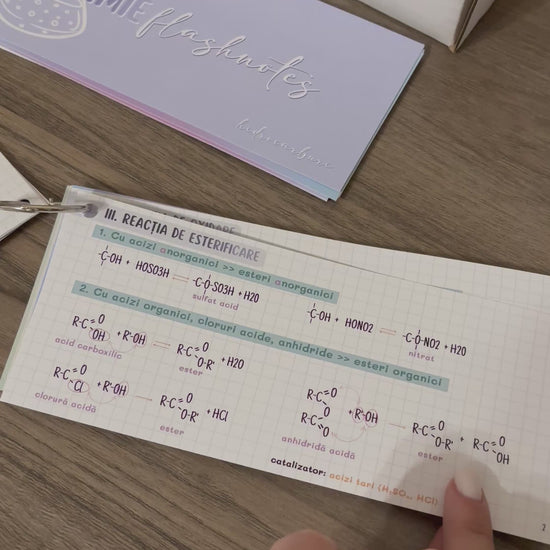 MIE
flashnotes
hidrocarburi
DE OXIDARE
III. REACȚIA DE ESTERIFICARE
1. Cu acizi anorganici >> esteri anorganici
-C-OH + HOSO3H ⇌ -C-O-SO3H + H2O
sulfat acid
-C-OH + HONO2 ⇌ -C-O-NO2 + H2O
nitrat
2. Cu acizi organici, cloruri acide, anhidride >> esteri organici
R-C=O OH + R'-OH ⇌ R-C=O O-R' + H2O
acid carboxilic
ester
R-C=O Cl + R'-OH → R-C=O O-R' + HCl
clorură acidă
ester
R-C=O O R-C=O + R'-OH → R-C=O O-R' + R-C=O OH
anhidridă acidă
ester
catalizator: acizi tari (H2SO4, HCl)
2